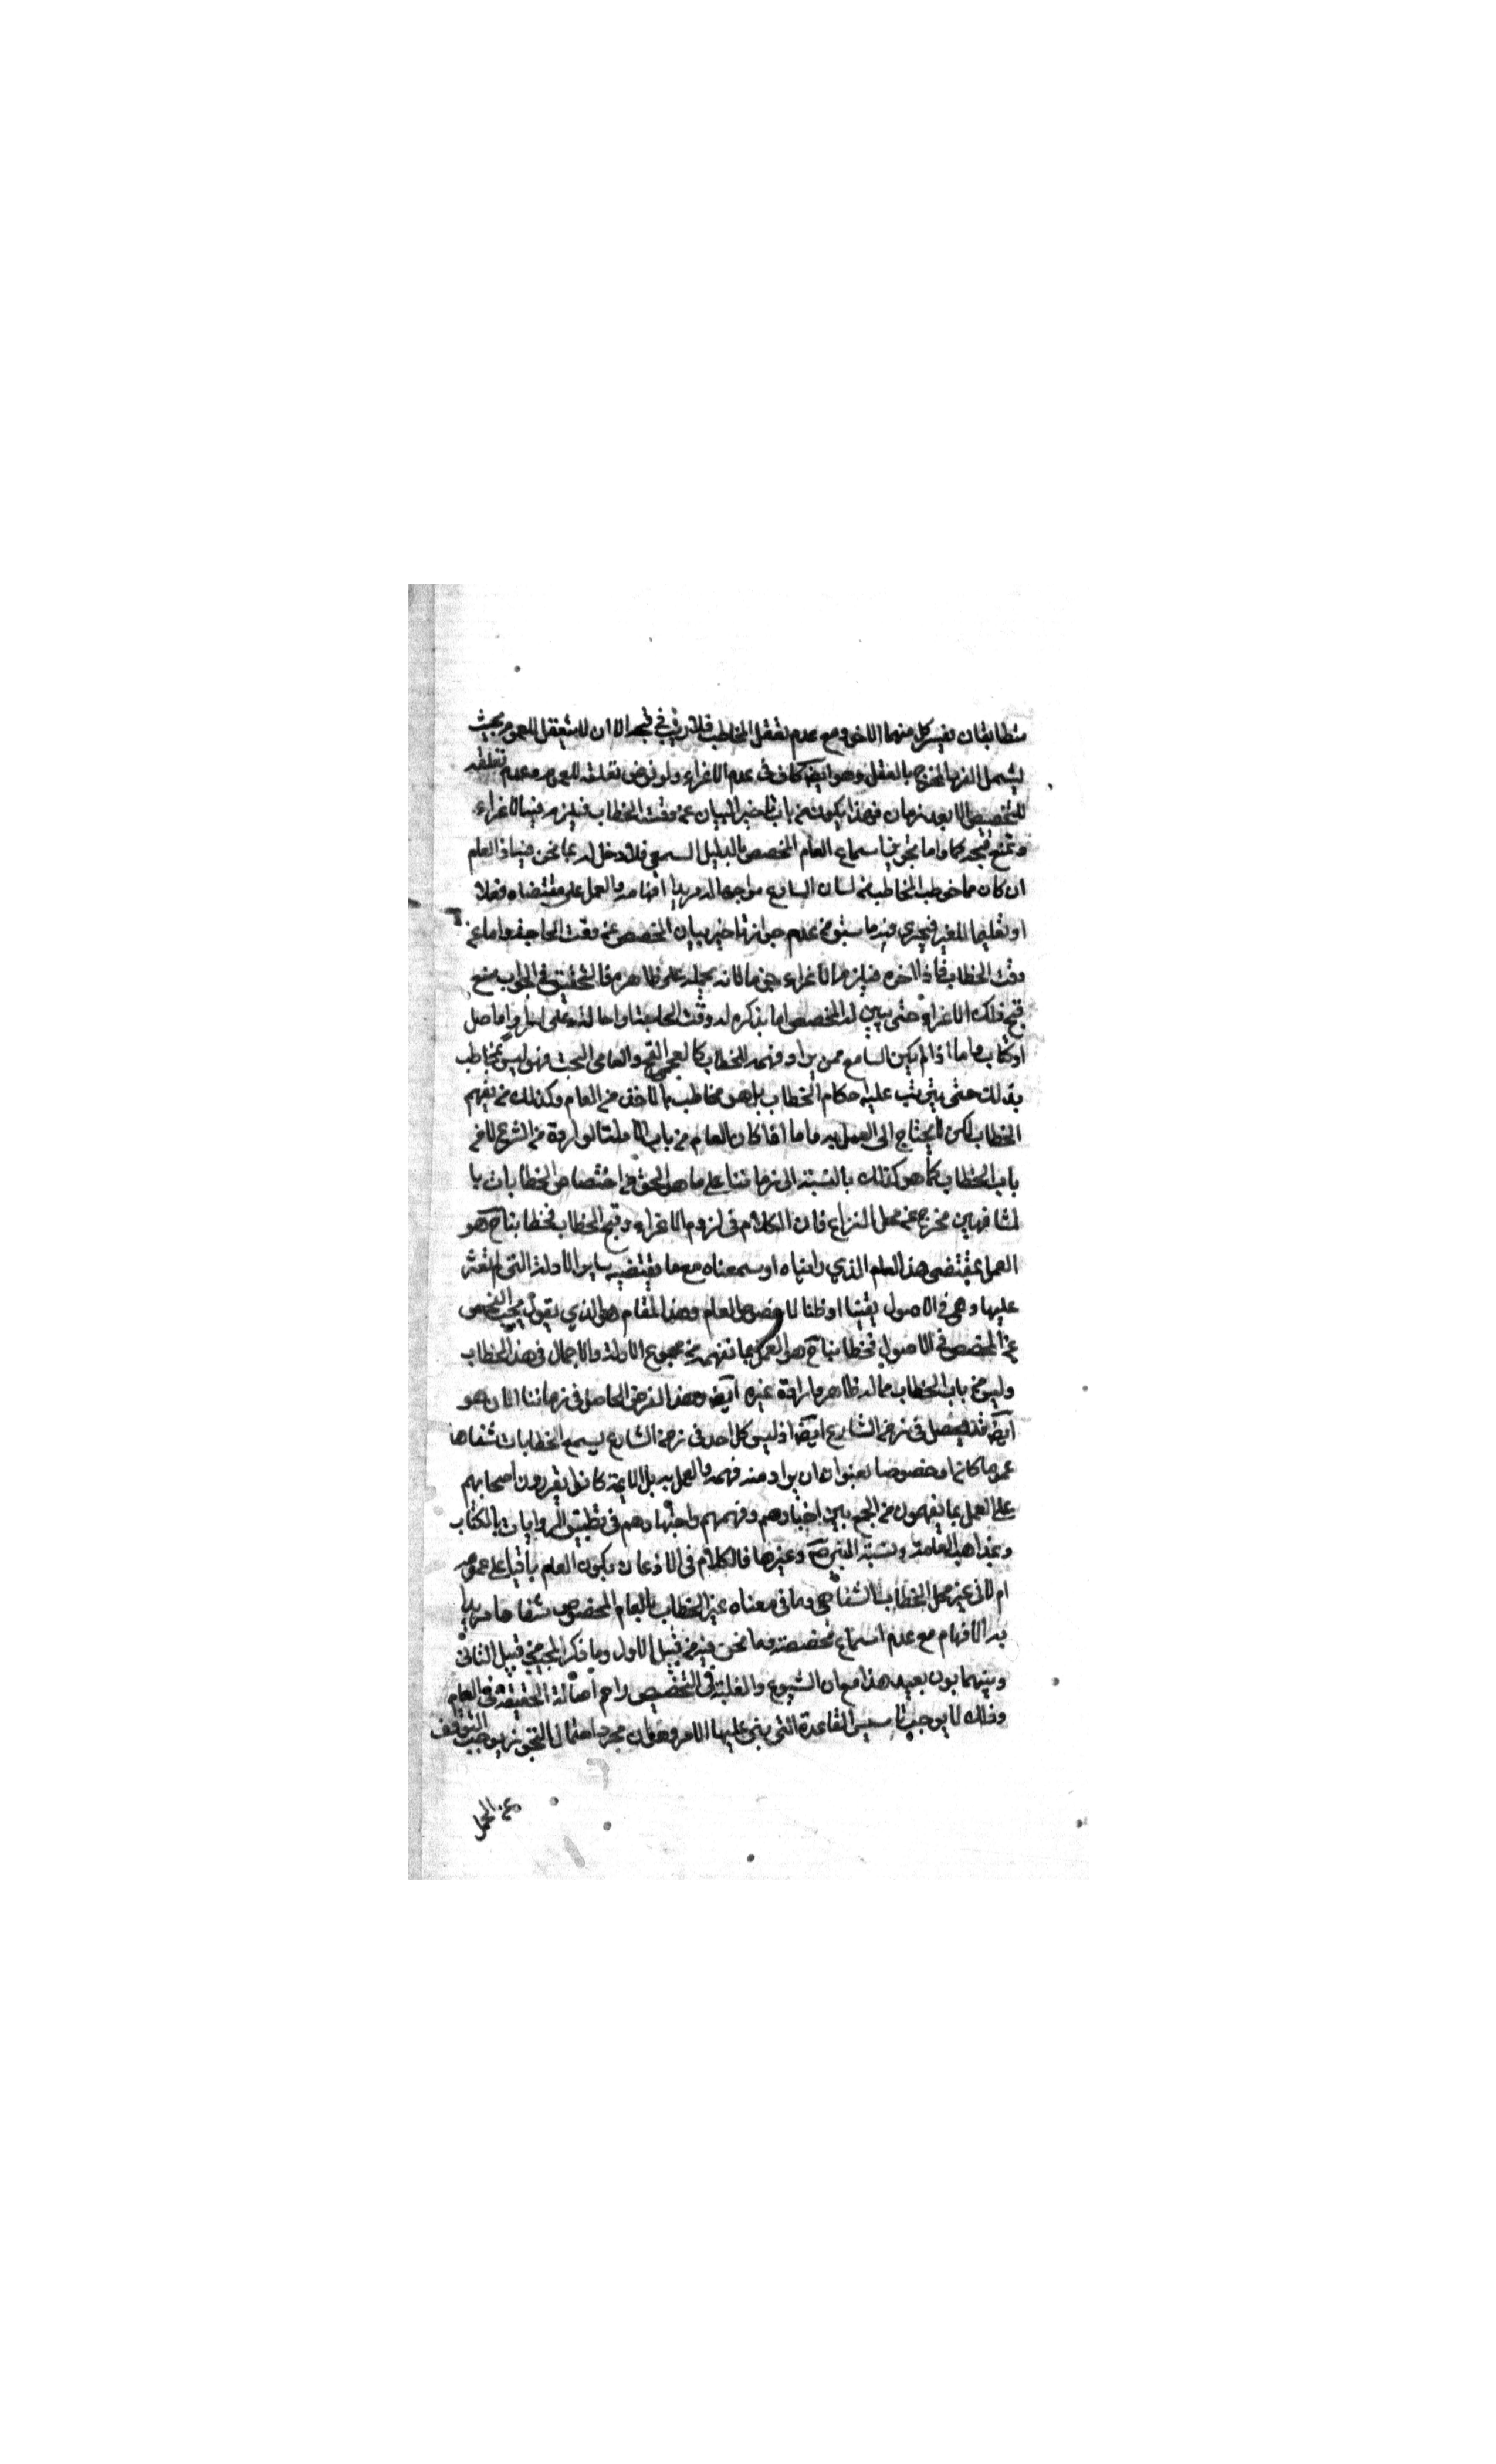 متطابقان يفسر كل منهما الاخر ومع عدم تعقل المخاطب فلا ريب في قبحه الا ان لا يتعقل العموم بحيث
يشمل الفرد المخرج بالعقل وهو ايضا كاف في عدم الاغراء ولو فرض تعقله للعموم وعدم تعقله
للتخصيص الا بعد زمان فهذا يكون من باب تاخير البيان عن وقت الخطاب فيلزم فيه الاغراء
ونمنع قبحه كما واما تجويز اسماع العام المخصص بالدليل السمعي فلا دخل له بما نحن فيه اذ العام
ان كان مما خوطب المخاطب به من لسان الشارع مواجها له مريدا افهامه والعمل على مقتضاه فعلا
او تعليما للغير فيجري فيه ما سبق من عدم جواز تاخير بيان المخصص عن وقت الحاجة واما عن
وقت الخطاب فاذا اخره فيلزم الاغراء حينئذ لانه يحمله على ظاهره فالتحقيق في الجواب منع
قبح ذلك الاغراء حتى يبين له المخصص اما بذكره له وقت الحاجة او احالته على راو او اصل
او كتاب واما اذا لم يكن السامع ممن يراد فهمه للخطاب كالعجمي القح والعامي البحت فهو ليس بمخاطب
بذلك حتى يترتب عليه احكام الخطاب بل هو مخاطب بالاخذ من العام وكذلك من يفهم
الخطاب لكن لا يحتاج الى العمل به واما اذا كان العام من باب الادلة الواردة من الشرع لا من
باب الخطاب كما هو كذلك بالنسبة الى زماننا على ما هو الحق من اختصاص الخطابات با
لمشافهين فخرج عن محل النزاع فان الكلام في لزوم الاغراء وقبح الخطاب فخطابنا ح هو
العمل بمقتضى هذا العام الذي رايناه او سمعناه مع ما يقتضيه ساير الادلة التي لم نعثر
عليها وهي في الاصول يقينا او ظنا لا خصوص العام وهذا المقام هو الذي يقول يجب الفحص
عن المخصص في الاصول فخطابنا ح هو العمل بما نفهمه من مجموع الادلة والاجمال في هذا الخطاب
وليس من باب الخطاب بما له ظاهر وارادة غيره ايضا وهذا الفرض الحاصل في زماننا الان هو
ايضا قد يحصل في زمن الشارع ايضا اذ ليس كل احد في زمن الشارع يسمع الخطابات شفاها
عموما كانا او خصوصا بعنوان ان يراد منه فهمه والعمل به بل الائمة كانوا يقررون اصحابهم
على العمل بما يفهمون من الجمع بين اخبارهم وفهمهم واجتهادهم في تطبيق الروايات بالكتاب
وبمذاهب العامة وبسنة النبي ص وغيرها فالكلام في الاذعان بكون العام باقيا على عمومه
ام لا في غير محل الخطاب الشفاهي وما في معناه غير الخطاب بالعام المخصوص شفاها مريدا
به الافهام مع عدم اسماع مخصصه وما نحن فيه من قبيل الاول وما ذكر المجيب من قبيل الثاني
وبينهما بون بعيد هذا مع ان الشيوع والغلبة في التخصيص زاحم اصالة الحقيقة في العام
وذلك لا يوجب تاسيس القاعدة التي بني عليها الامر وهو ان مجرد احتمال التجوز يوجب التوقف
عن الحمل